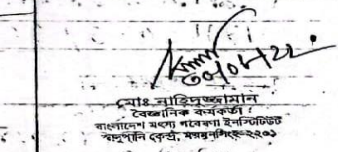 ৩০/০৮/২২
মোঃ নাহিদুজ্জামান
বৈজ্ঞানিক কর্মকর্তা
বাংলাদেশ মৎস্য গবেষণা ইনস্টিটিউট
স্বাদুপানি কেন্দ্র, ময়মনসিংহ-২২০১